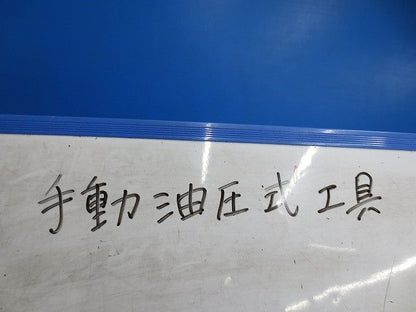 手動油圧式工具